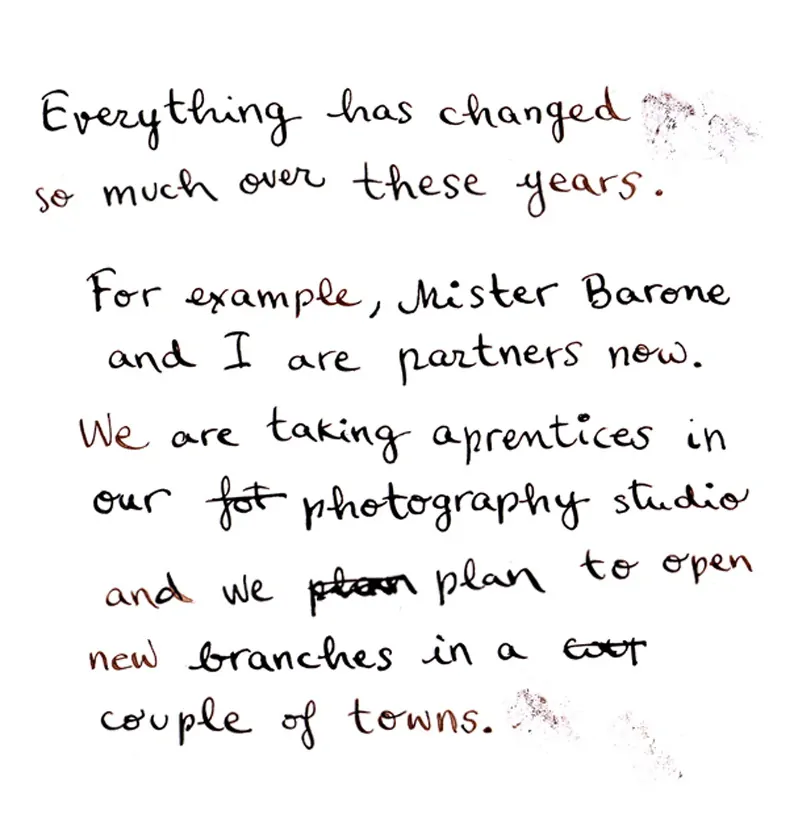 Everything has changed
so much over these years.
For example, Mister Barone
and I are partners now.
We are taking aprentices in
our fot photography studio
and we plan plan to open
new branches in a
couple of towns.